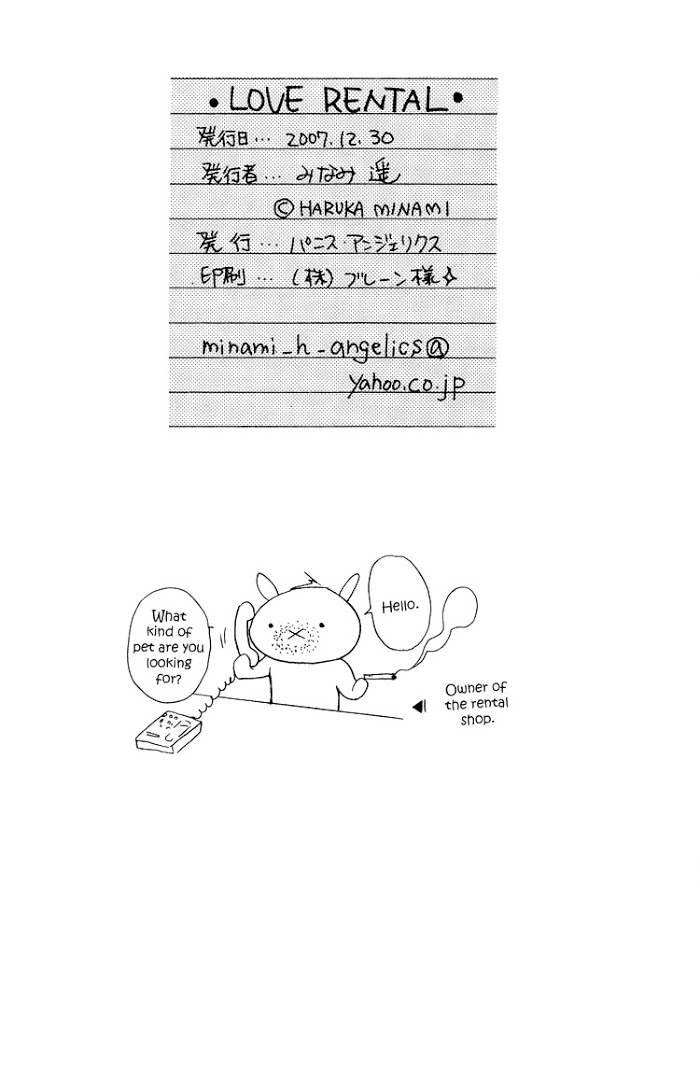 ・LOVE RENTAL・
発行日… 2007.12.30
発行者… みなみ 遥
©HARUKA MINAMI
発行… パニス・アンジェリクス
印刷… (株)ブレーン様✧
minami_h_angelics@
yahoo.co.jp
Hello.
What
kind of
pet are you
looking
for?
Owner of
the rental
shop.